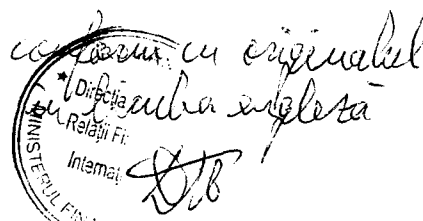 conform cu originalul
în limba engleză
* Direcția
Relații Fi
Internaț
MINISTERUL FINA